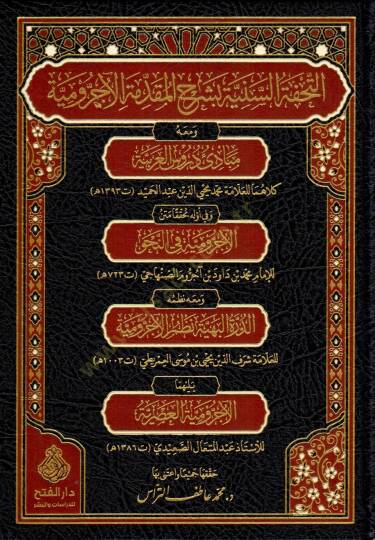 التحفة السنية بشرح المقدمة الآجرومية
ومعه
مبادئ دروس العربية
كلاهما للعلامة محمد محيي الدين عبد الحميد (ت ١٣٩٣هـ)
وفي أوله محققا متن
الآجرومية في النحو
للإمام محمد بن داود بن آجروم الصنهاجي (ت ٧٢٣هـ)
ومعه نظمه
الدرة البهية نظم الآجرومية
للعلامة شرف الدين يحيى بن موسى العمريطي (ت ١٠٠٣هـ)
يليهما
الآجرومية العصرية
للأستاذ عبد المتعال الصعيدي (ت ١٣٨٦هـ)
حققها جميعا واعتنى بها
د. محمد عاطف التراس
دار الفتح
للدراسات والنشر